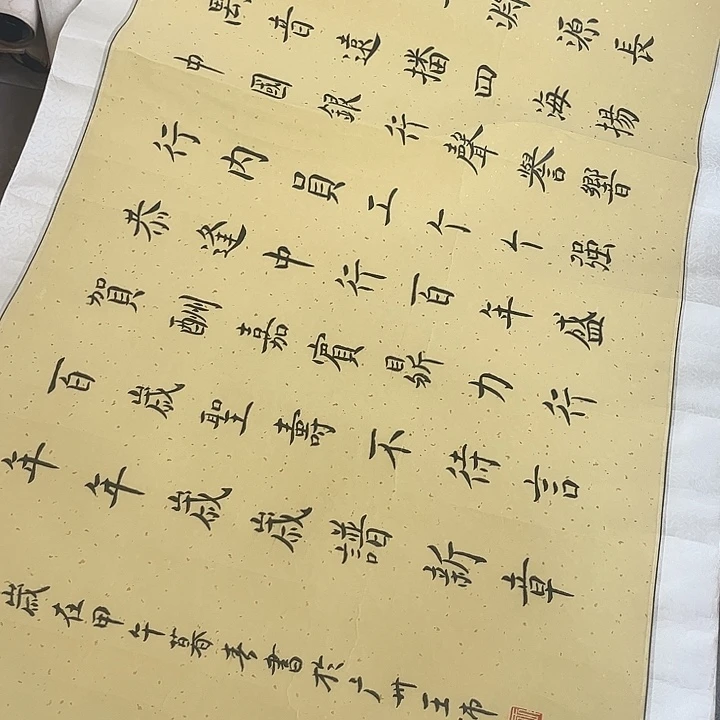 淵源長
音遠播四海揚
中國銀行聲譽響
行內員工个个强
恭逢中行百年盛
賀酬嘉賓力行
百歲聖壽不待言
年年歲歲譜新章
歲在甲午暮春書於广州